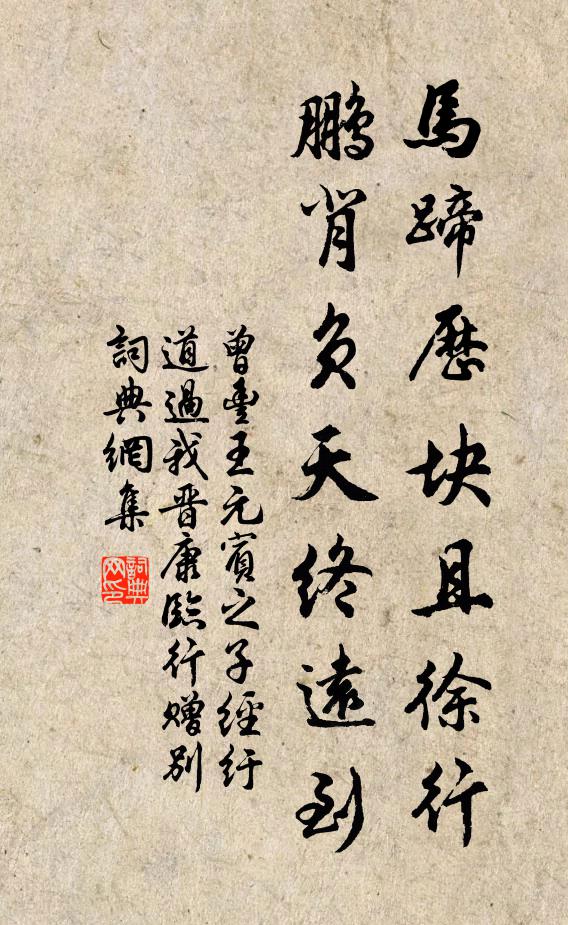 馬蹄歷块且徐行
鵬背负天終遠到
曾豐王元賓之子經紆
道過我晋康臨行贈别
詞典網集
詞典网印